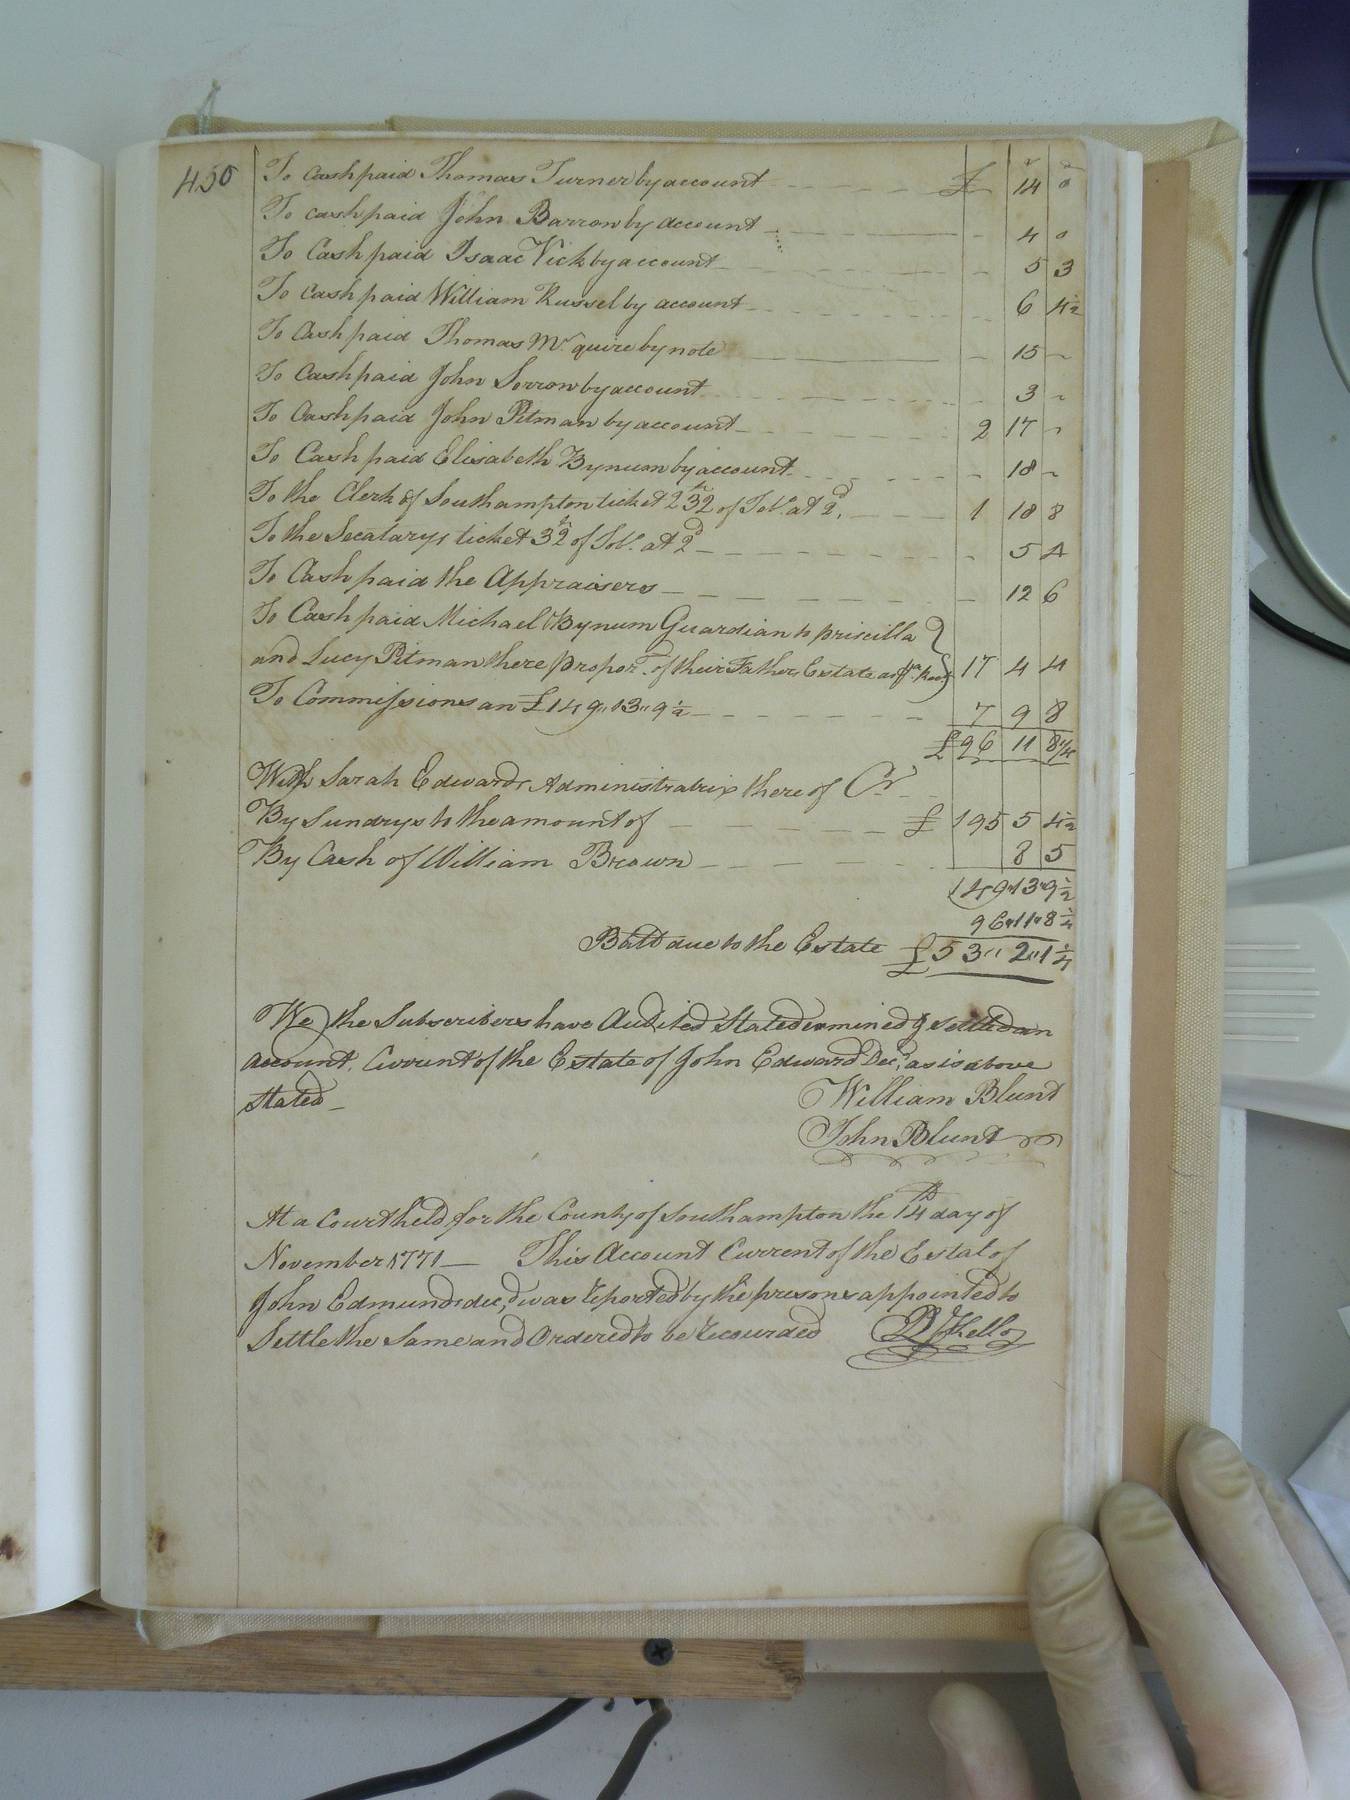 450
To Cash paid Thomas Turner by account £ 14 0
To cash paid John Barrow by account - 4 0
To Cash paid Isaac Vick by account - 5 3
To Cash paid William Russel by account 6 4½
To Cash paid Thomas Mc.quire by note - 15 -
To Cash paid John Sorrow by account - 3 -
To Cash paid John Pitman by account 2 17 -
To Cash paid Elisabeth Bynum by account - 18 -
To the Clerk of Southampton ticket 232 of Tob.o at 2d. 1 18 8
To the Secatarys ticket 32 of Tob.o at 2d - 5 4
To Cash paid the Appraisers - 12 6
To Cash paid Michael Bynum Guardian to priscilla
and Lucy Pitman there propor.n of their Fathers Estate as 17 4 4
To Commissions on £149"13"9½ 7 9 8
£96 11 8¼
With Sarah Edwards Administratrix there of Cr
By Sundrys to the amount of £ 195 5 4½
By Cash of William Brown 8 5
149"13"9½
96"11"8¼
Balld due to the Estate £53"2"1¼
We the Subscribers have Audited Stated exmined & settled an
account Current of the Estate of John Edward Dec.d as is above
Stated
William Blunt
John Blunt
At a Court held for the County of Southampton the 14th day of
November 1771 This Account Current of the Estal of
John Edmunds dec,d was reported by the prisons appointed to
Settle the Same and Ordered to be recourded